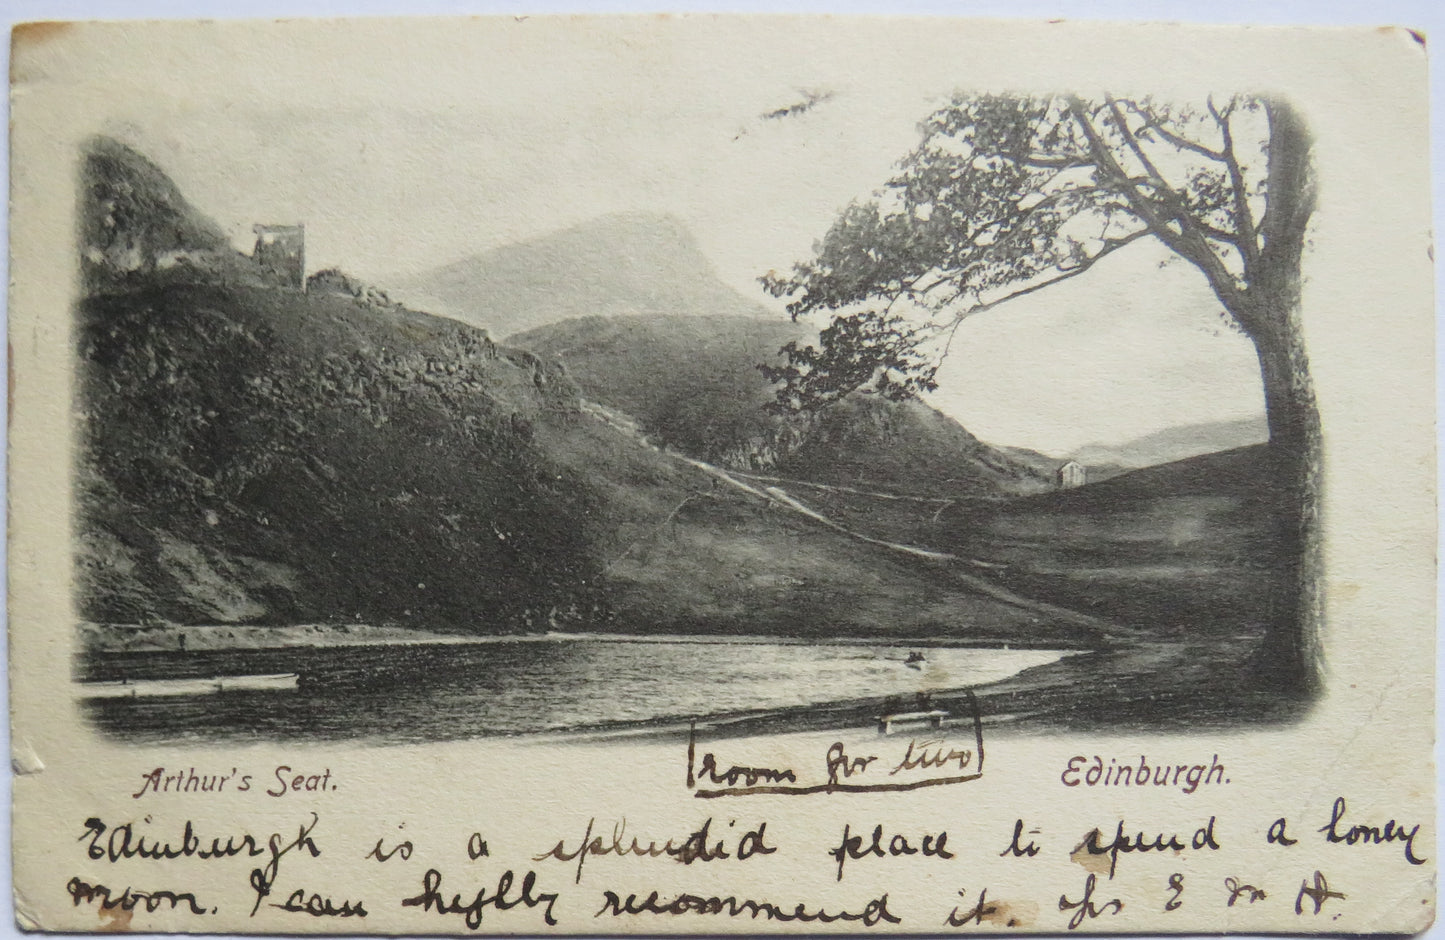 room for two
Arthur's Seat. Edinburgh.
Edinburgh is a splendid place to spend a honey
moon. I can heghlly recommend it. E M H.